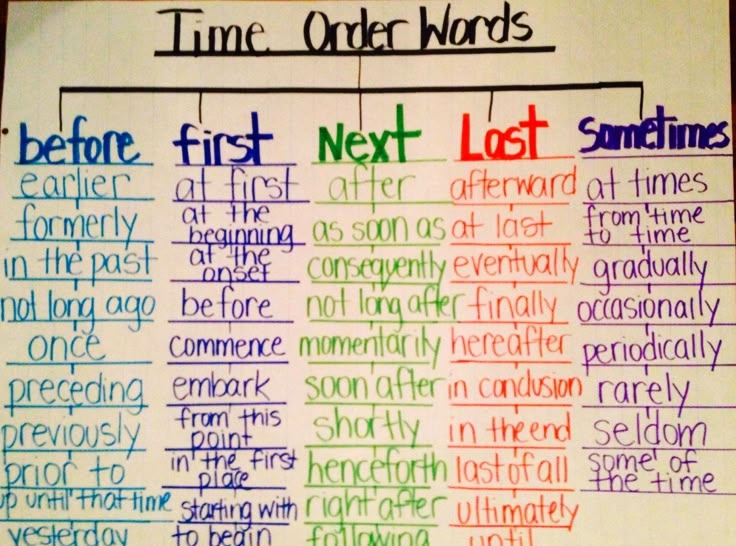 Time Order Words
before
earlier
formerly
in the past
not long ago
once
preceding
previously
prior to
up until that time
yesterday
first
at first
at the
beginning
at the
onset
before
commence
embark
from this
point
in the first
place
starting with
to begin
Next
after
as soon as
consequently
not long after
momentarily
soon after
shortly
henceforth
right after
following
Last
afterward
at last
eventually
finally
hereafter
in conclusion
in the end
last of all
ultimately
until
Sometimes
at times
from time
to time
gradually
occasionally
periodically
rarely
seldom
some of
the time